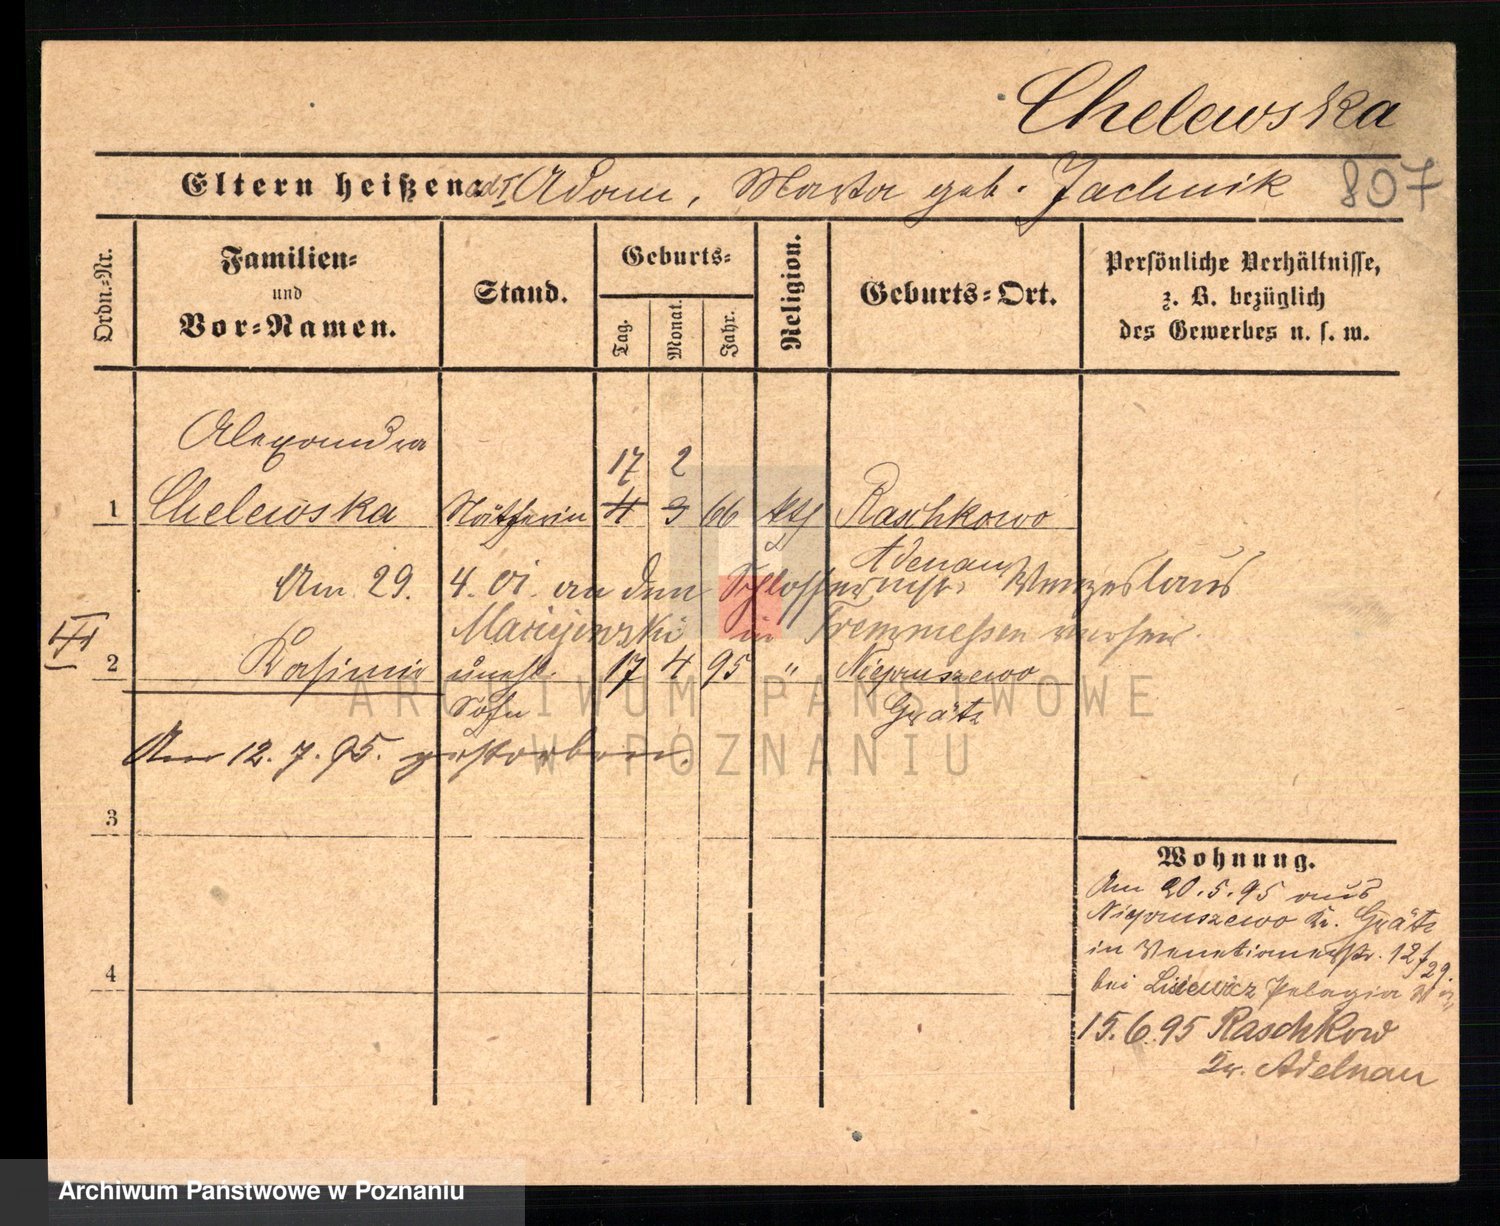 Chelewska
Eltern heißen: Adam, Marta geb. Jachnik 807
Ordn.-Nr.
Familien-
und
Vor-Namen.
Stand.
Geburts-
Tag.
Monat.
Jahr.
Religion.
Geburts-Ort.
Persönliche Verhältnisse,
z. B. bezüglich
des Gewerbes u. s. w.
Alexandra
17 2
1 Chelewska Nätherin 4 3 66 kth Raschkowo
Adenau
Am 29. 4. 01. an den Schlosser Wenzeslaus
in Tremmessen
III
2 Kasimir unehl. 17 4 95 " Niepruszewo
Sohn Grätz
Am 12. 7. 95. gestorben.
3
4
Wohnung.
Am 20. 5. 95 aus
Niepruszewo Kr. Grätz
in Venetianerstr. 12
bei Pelagia
15. 6. 95 Raschkow
Kr. Adelnau
ARCHIWUM PAŃSTWOWE
W POZNANIU
Archiwum Państwowe w Poznaniu